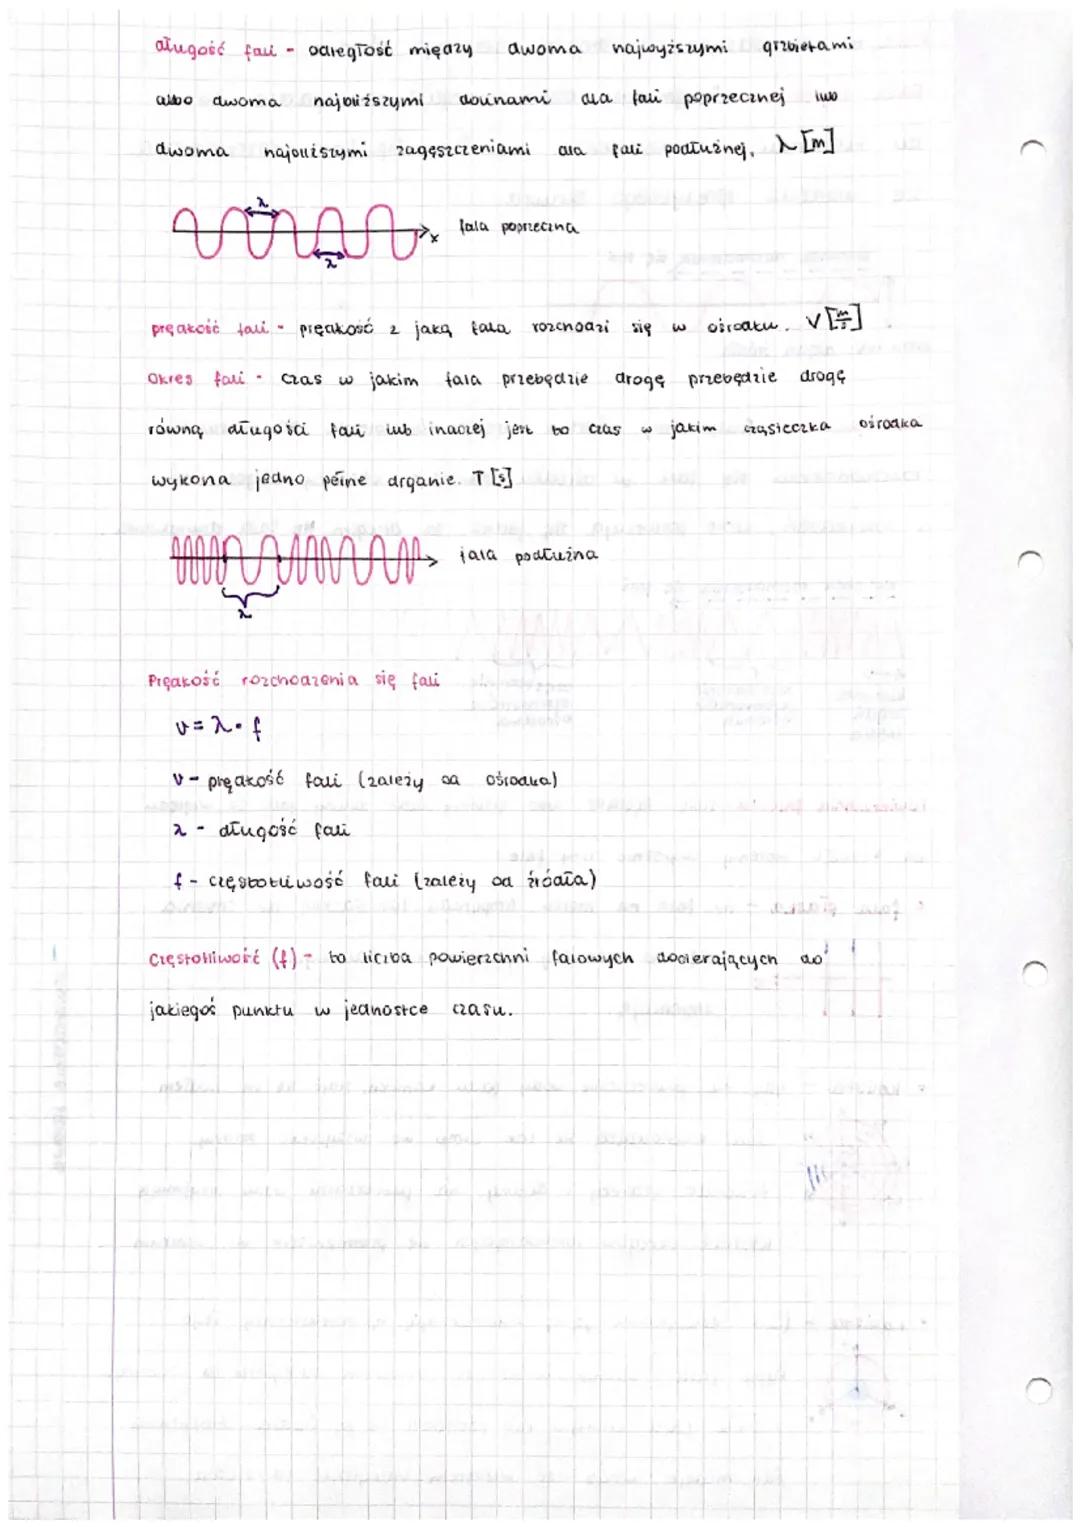 długość fali - odległość między dwoma najwyższymi grzbietami
albo dwoma najbliższymi dolinami dla fali poprzecznej lub
dwoma najbliższymi zagęszczeniami dla fali podłużnej. λ [m]
λ
x
fala poprzeczna
λ
prędkość fali - prędkość z jaką fala rozchodzi się w ośrodku. V [m/s]
Okres fali - czas w jakim fala przebędzie drogę przebędzie drogę
równą długości fali lub inaczej jest to czas w jakim cząsteczka ośrodka
wykona jedno pełne drganie. T [s]
fala podłużna
λ
Prędkość rozchodzenia się fali
v = λ · f
v - prędkość fali (zależy od ośrodka)
λ - długość fali
f - częstotliwość fali (zależy od źródła)
Częstotliwość (f) - to liczba powierzchni falowych docierających do
jakiegoś punktu w jednostce czasu.